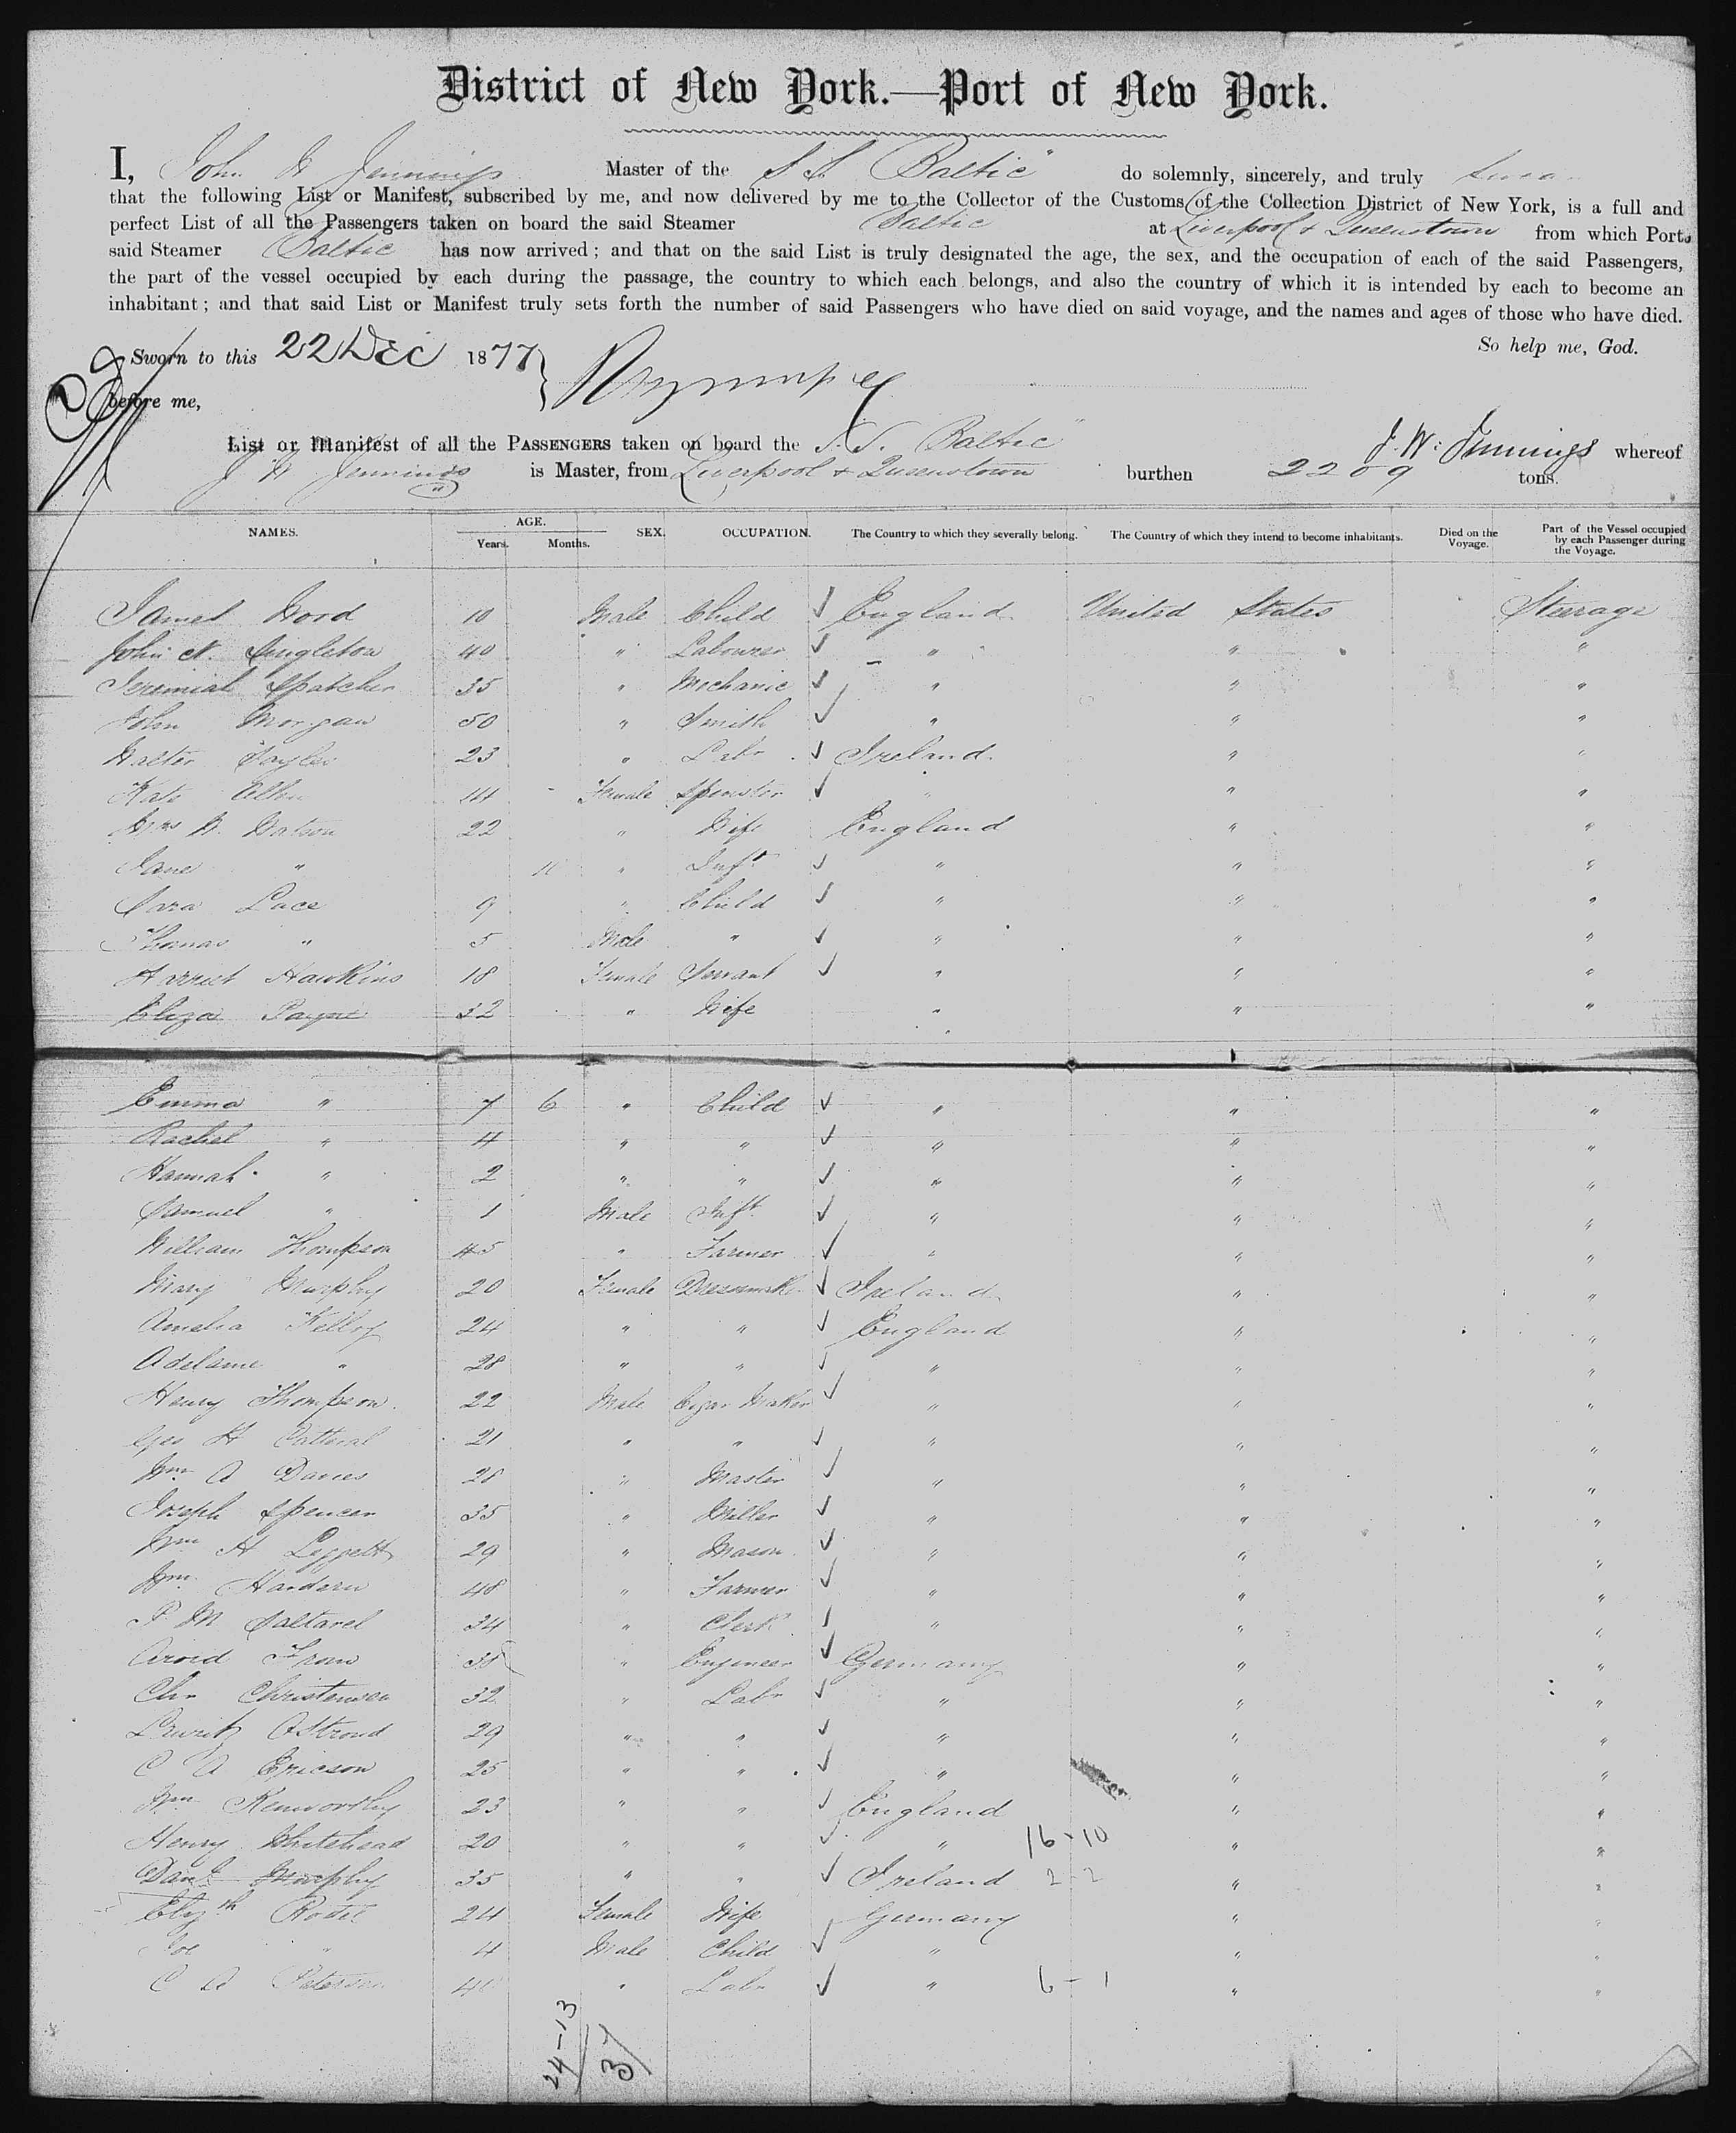 District of New York.—Port of New York.
I, John W Jennings Master of the S.S. "Baltic" do solemnly, sincerely, and truly swear
that the following List or Manifest, subscribed by me, and now delivered by me to the Collector of the Customs of the Collection District of New York, is a full and
perfect List of all the Passengers taken on board the said Steamer Baltic at Liverpool & Queenstown from which Ports
said Steamer Baltic has now arrived; and that on the said List is truly designated the age, the sex, and the occupation of each of the said Passengers,
the part of the vessel occupied by each during the passage, the country to which each belongs, and also the country of which it is intended by each to become an
inhabitant; and that said List or Manifest truly sets forth the number of said Passengers who have died on said voyage, and the names and ages of those who have died.
So help me, God.
Sworn to this 22 Dec 1877
before me,
J. W. Jennings
List or Manifest of all the PASSENGERS taken on board the S.S. Baltic" whereof
J W Jennings is Master, from Liverpool & Queenstown burthen 2209 tons.
NAMES. AGE. Years. Months. SEX. OCCUPATION. The Country to which they severally belong. The Country of which they intend to become inhabitants. Died on the Voyage. Part of the Vessel occupied by each Passenger during the Voyage.
James Wood 10 Male Child ✓ England United States Steerage
John N. Singleton 40 " Labourer ✓ " " "
Jeremiah Spatcher 35 " Mechanic ✓ " " "
John Morgan 50 " Smith ✓ " " "
Walter 23 " Labr ✓ Ireland " "
Kate 44 Female Spinster ✓ " " "
Mrs W. Watson 22 " Wife England " "
Jane " " Inft ✓ " " "
Sara Lace 9 " Child ✓ " " "
Thomas " 5 Male " ✓ " " "
Harriet Hawkins 18 Female Servant ✓ " " "
Eliza Payne 32 " Wife " " "
Emma " 7 6 " Child ✓ " " "
Rachel " 4 " " ✓ " " "
Hannah " 2 " " ✓ " " "
Samuel " 1 Male Inft ✓ " " "
William Thompson 45 " Farmer ✓ " " "
Mary Murphy 20 Female Dressmaker ✓ Ireland " "
Amelia Kelly 24 " " ✓ England " "
Adelaine " 28 " " ✓ " " "
Henry Thompson 22 Male Cigar Maker ✓ " " "
Geo H Catteral 21 " " ✓ " " "
Wm A Davies 28 " Master ✓ " " "
Joseph Spencer 35 " Miller ✓ " " "
Wm H Leggett 29 " Mason ✓ " " "
Wm Hardern 48 " Farmer ✓ " " "
P M Saltarel 34 " Clerk ✓ " " "
Arvid 38 " Engineer ✓ Germany " "
Chr Christensen 32 " Labr ✓ " " "
29 " " ✓ " " "
C A Ericson 25 " " ✓ " " "
Wm Kenworthy 23 " " ✓ England " "
Henry Whitehead 20 " " ✓ " 16-10 " "
Danl Murphy 35 " " ✓ Ireland 2-2 " "
Elizth Rodel 24 Female Wife Germany " "
Joe " 4 Male Child ✓ " " "
C A Peterson " Labr ✓ " 6-1 " "
24-13